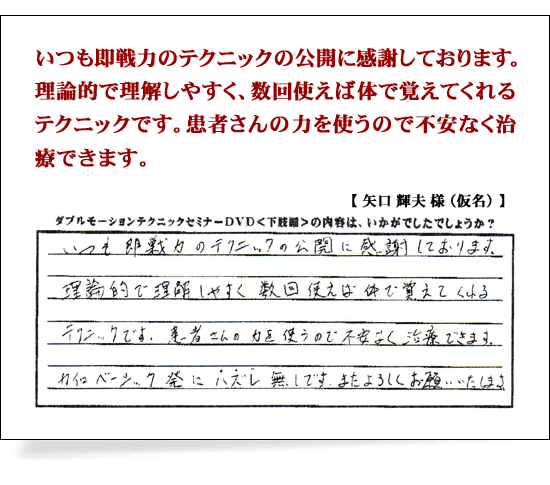 いつも即戦力のテクニックの公開に感謝しております。
理論的で理解しやすく、数回使えば体で覚えてくれる
テクニックです。患者さんの力を使うので不安なく治
療できます。
【 矢口 輝夫 様 （仮名） 】
ダブルモーションテクニックセミナーDVD＜下肢編＞の内容は、いかがでしたでしょうか？
いつも即戦力のテクニックの公開に感謝しております。
理論的で理解しやすく 数回使えば体で覚えてくれる
テクニックです。患者さんの力を使うので不安なく治療できます。
カイロベーシック発にハズレ無しです。またよろしくお願いいたします